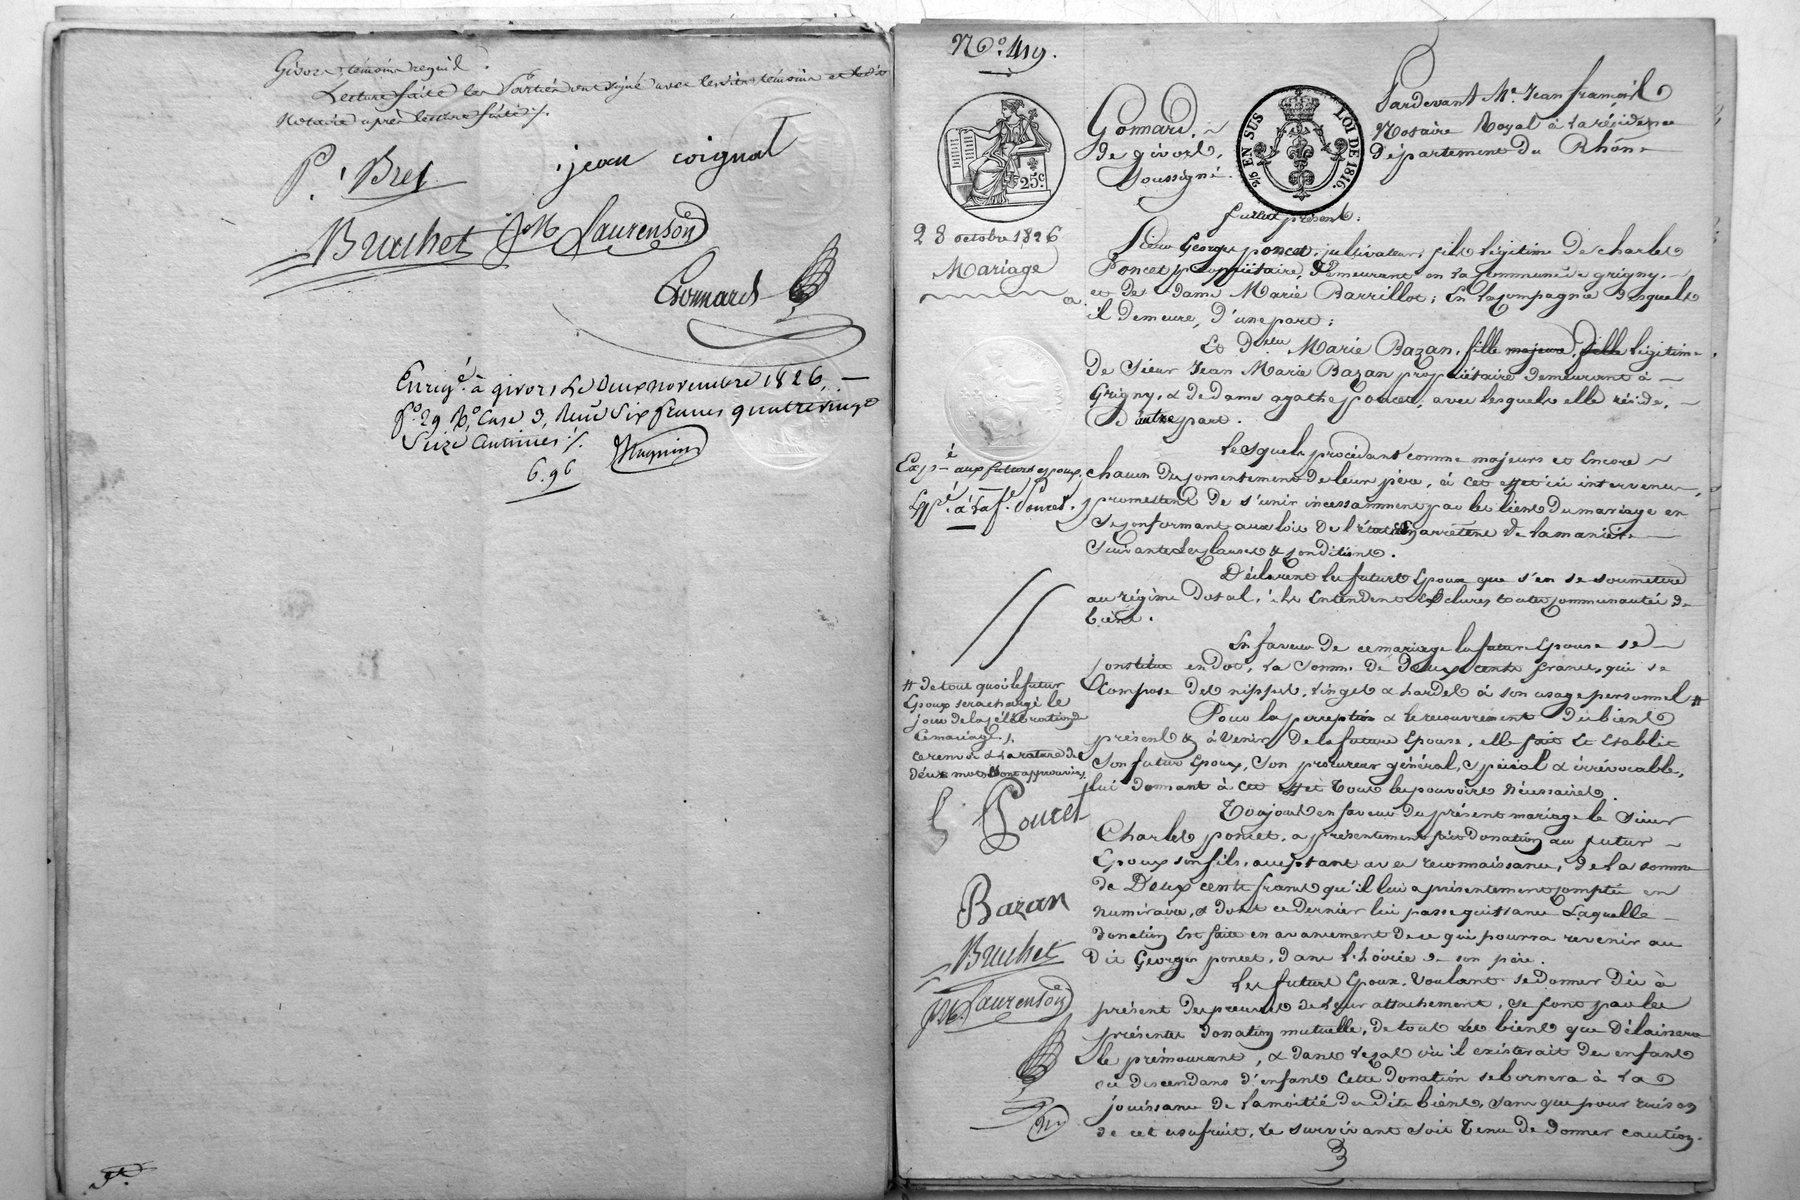 Givors, témoins requis.
Lecture faite les Parties ont signé avec lesdits témoins et ledit
Notaire après lecture faite ./.
P. Bret jean coignat
Brachet JM Laurenson
Gonnard
Enreg.é à givors le deux novembre 1826, —
f.o 29 R.o Case 3, Reçu Six francs quatrevingt
Seize Centimes ./.
6.96
N.o 419.
Pardevant M.e Jean français
Gonnard, Notaire Royal à la résidence
de givors, département du Rhône
Soussigné.
25c
2/5 EN SUS LOI DE 1816.
furent présent:
28 octobre 1826
Mariage
Sieur Georges poncet, cultivateur, fils légitime de charles
Poncet propriétaire, demeurant en la commune de grigny. —
et de dame Marie Barrillot; En la compagnie desquels
il demeure, d'une part;
Et d.elle Marie Bazan, fille majeure, fille légitime
de Sieur Jean Marie Bazan propriétaire demeurant à —
Grigny, & de dame agathe Poncet, avec lesquels elle réside, —
d'autre part.
Lesquels procédant comme majeurs et Encore —
chacun du consentement de leur père, à cet effet ici intervenu,
promettent de s'unir incessamment par les liens du mariage en
se conformant aux lois de l'état & en arrêtent de la manière —
Suivante les clauses & conditions.
Exp.é aux futurs epoux,
Exp.é à la f.e Poncet.
Déclarent les futurs Epoux que s'en se soumettre
au régime Dotal, ils Entendent Exclures toute communauté de
biens.
En faveur de ce mariage la future Epouse se —
constitue en dot, la somme de deux cents francs, qui se
Compose des nippes, linges & hardes à son usage personnel #
# de tout quoi le futur
Epoux sera chargé le
jour de la célébration de
ce mariage ./.
ce renvoi & la rature de
deux mots sont approuvés
Pour la perception & le recouvrement des biens
présents & à venir de la future Epouse, elle fait Et Etablit
Son futur Epoux, Son procureur général, spécial & irrévocable,
lui donnant à cet effet tous les pouvoirs nécessaires.
Toujours en faveur du présent mariage le Sieur
Charles poncet, a présentement fait donation au futur —
Epoux son fils, acceptant avec reconnaissance, de la somme
de Deux cents francs qu'il lui a présentement compté en
numéraire, & dont ce dernier lui passe quittance Laquelle —
donation Est faite en avancement de ce qui pourra revenir au
dit Georges poncet, dans l'hoirie de son père.
Poncet
Bazan
Brachet
JM Laurenson
Les futurs Epoux, voulant se donner dès à
présent des preuves de leur attachement, se font par les
présentes donation mutuelle, de tous les biens que délaissera
le prémourant, & dans le cas où il existerait des enfants
ou descendans d'enfant cette donation se bornera à la
jouissance de la moitié desdits biens, sans que pour raison
de cet usufruit, le survivant soit tenu de donner caution.